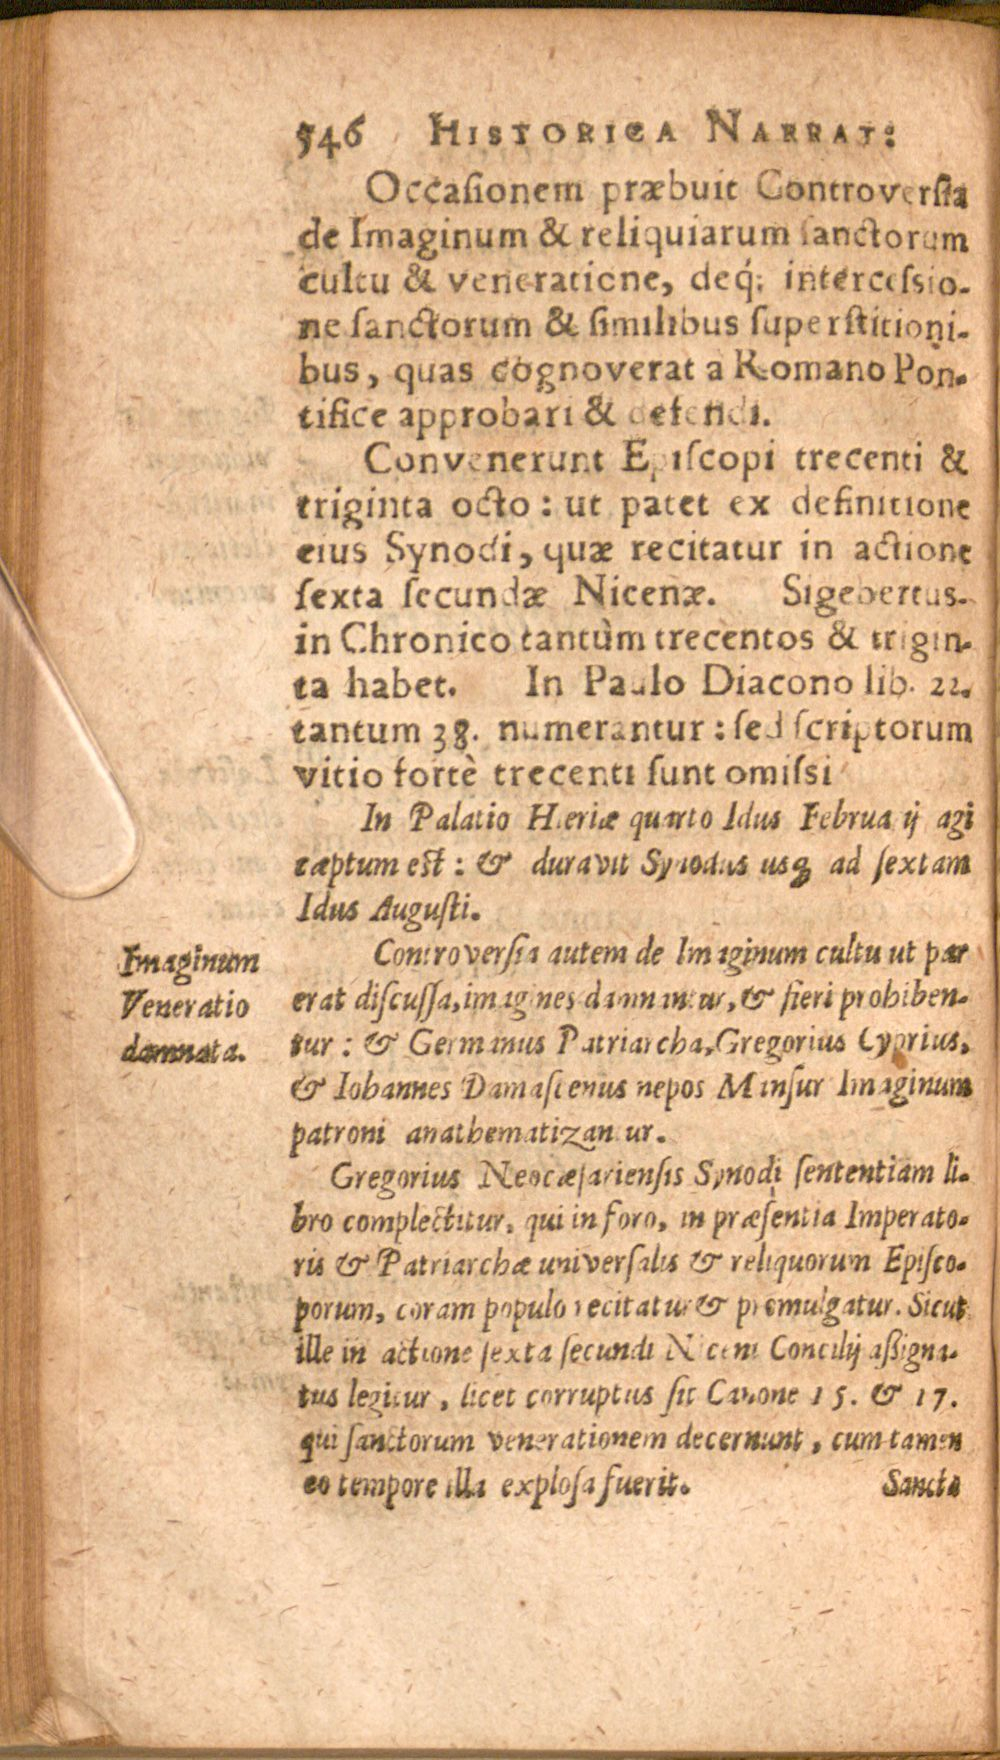 546 HISTORICA NARRAT:
Occasionem præbuit Controversia
de Imaginum & reliquiarum sanctorum
cultu & veneratione, deq́; intercessio-
ne sanctorum & similibus superstitioni-
bus, quas cognoverat a Romano Pon-
tifice approbari & defendi.
Convenerunt Episcopi trecenti &
triginta octo: ut patet ex definitione
eius Synodi, quæ recitatur in actione
sexta secundæ Nicenæ. Sigebertus
in Chronico tantùm trecentos & trigin-
ta habet. In Paulo Diacono lib. 22.
tantum 38. numerantur: sed scriptorum
vitio fortè trecenti sunt omissi
In Palatio Hieriæ quarto Idus Februarij agi
cæptum est: & duravit Synodus usq; ad sextam
Idus Augusti.
Imaginum
Veneratio
damnata.
Controversia autem de Imaginum cultu ut par
erat discussa, imagines damnantur, & fieri prohiben-
tur: & Germanus Patriarcha, Gregorius Cyprius,
& Iohannes Damascenus nepos Mansur Imaginum
patroni anathematizantur.
Gregorius Neocæsariensis Synodi sententiam li-
bro complectitur, qui in foro, in præsentia Imperato-
ris & Patriarchæ universalis & reliquorum Episco-
porum, coram populo recitatur & promulgatur. Sicut
ille in actione sexta secundi Niceni Concilij assigna-
tus legitur, licet corruptus sit Canone 15. & 17.
qui sanctorum venerationem decernunt, cum tamen
eo tempore illa explosa fuerit.
Sancta